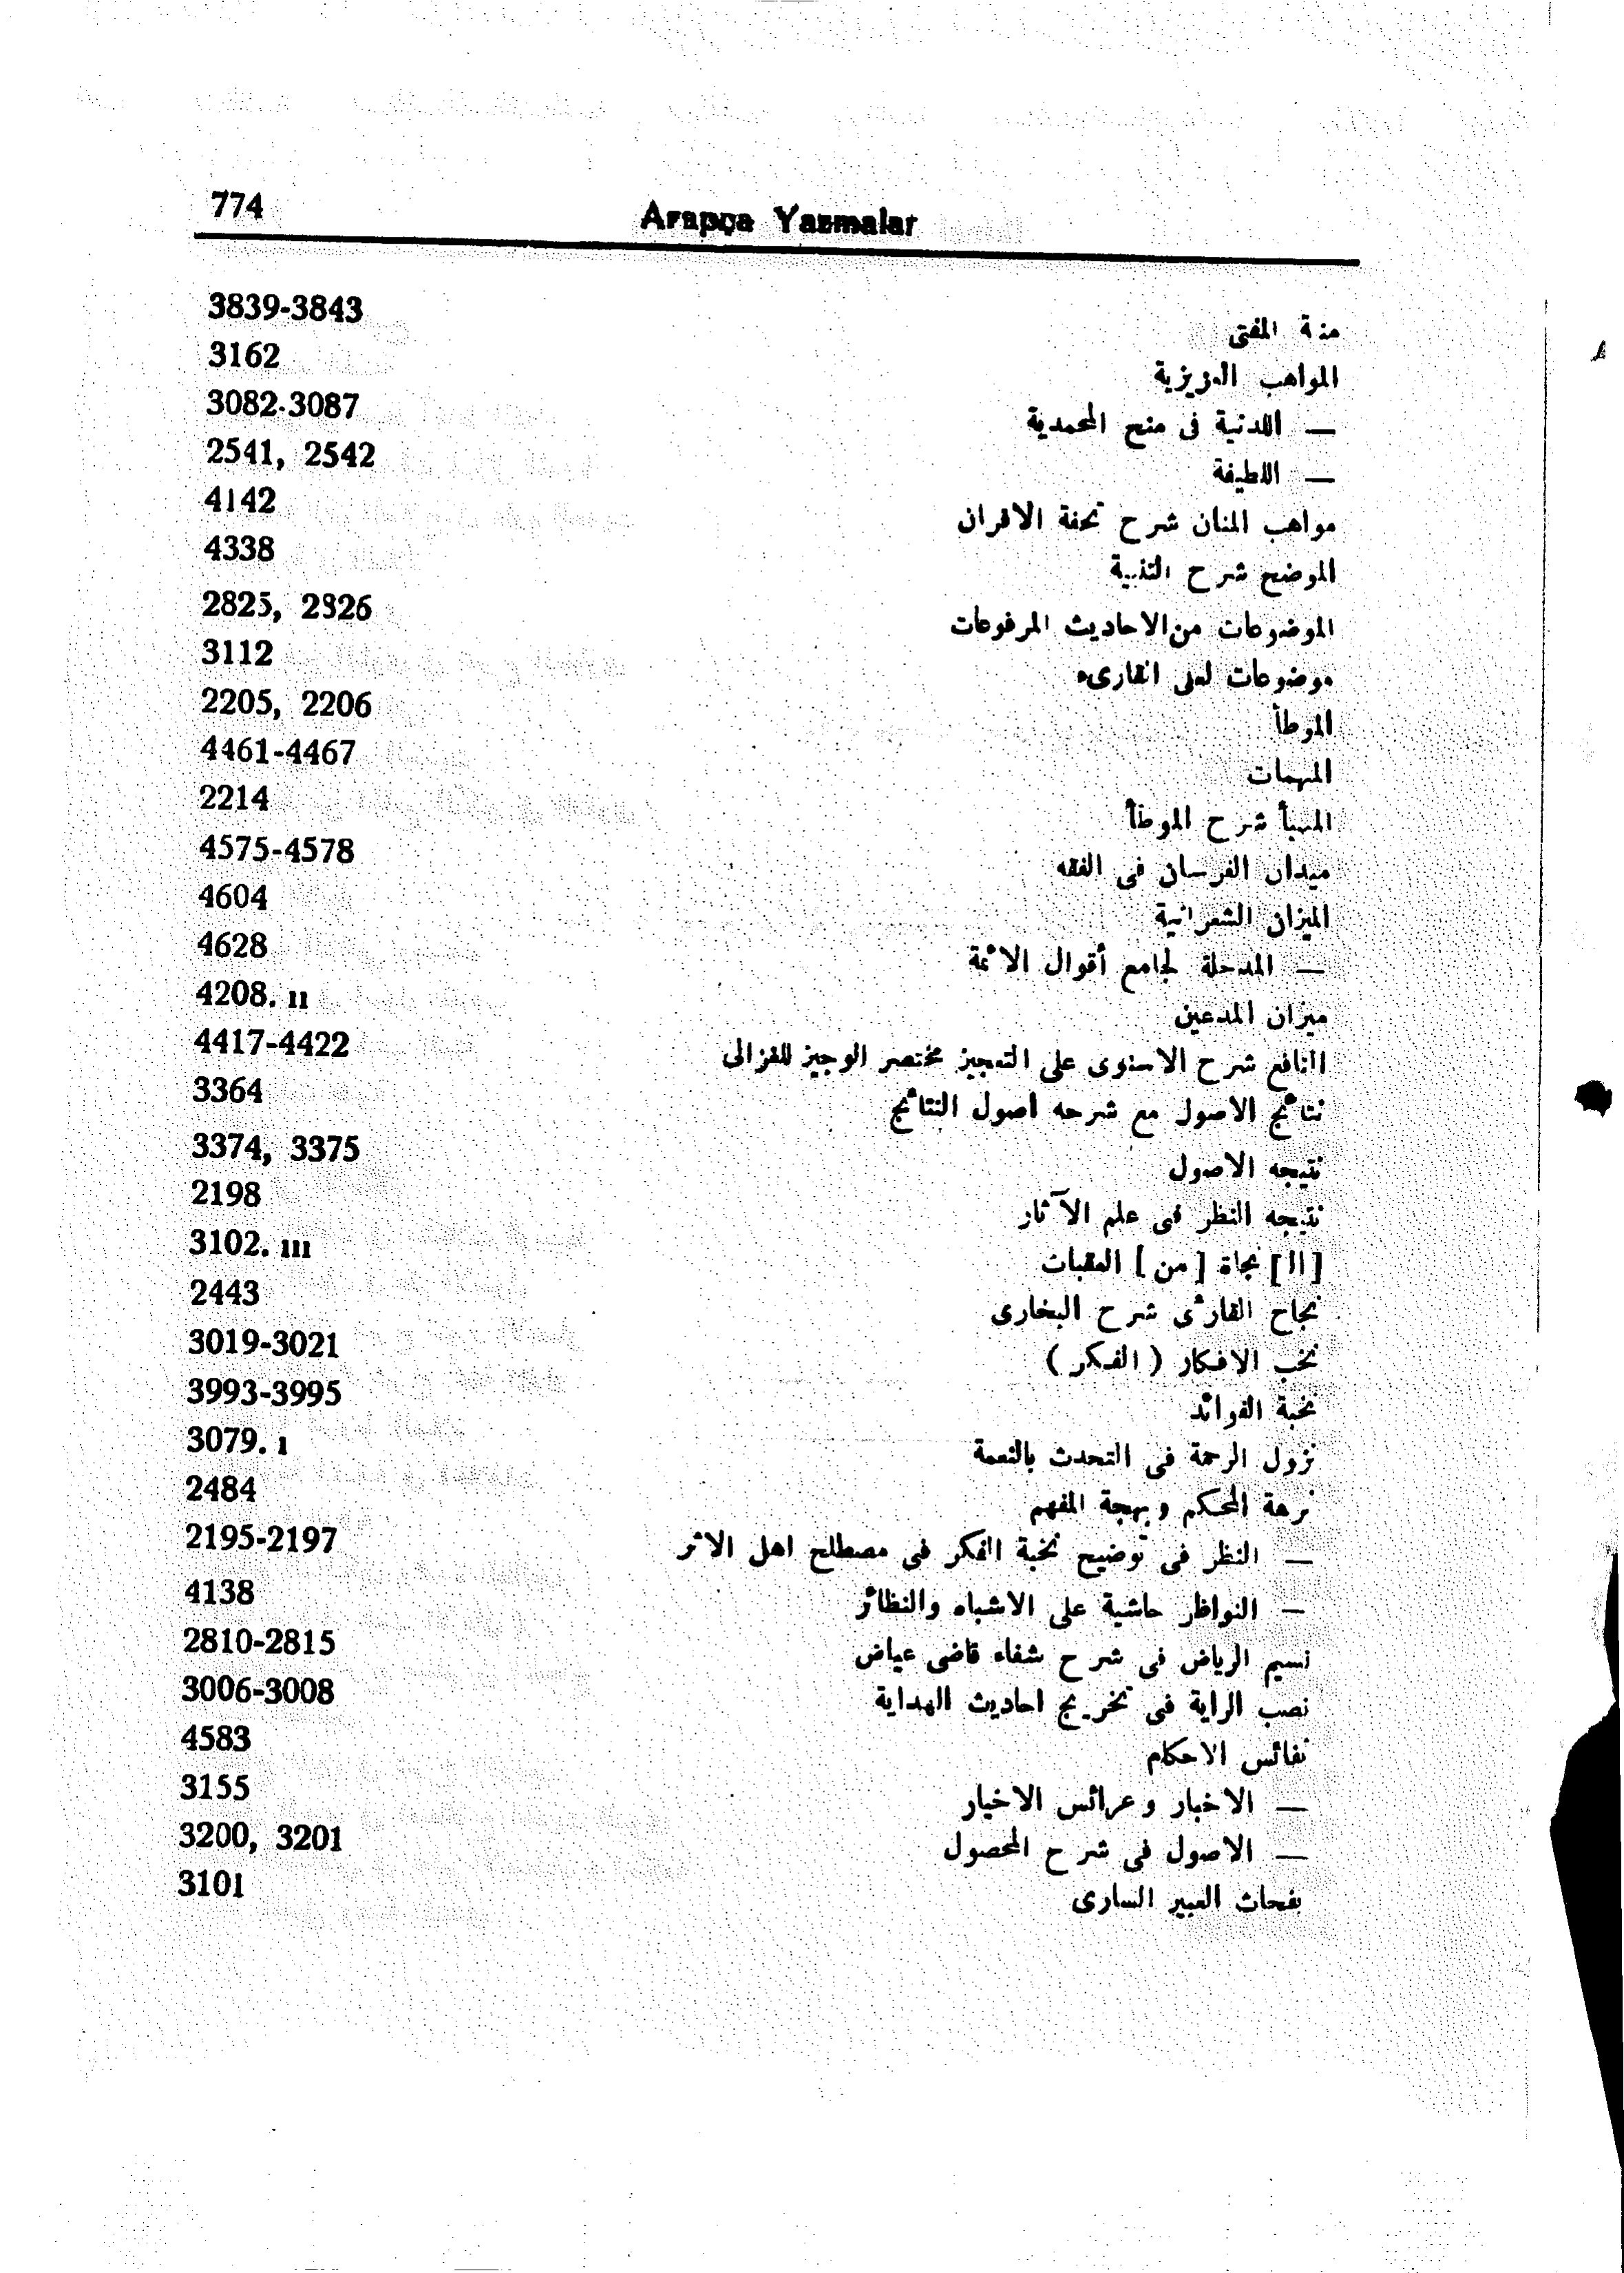 774 Arapça Yazmalar
منة المفتى 3839-3843
المواهب العزيزية 3162
— اللدنية فى منح المحمدية 3082-3087
— اللطيفة 2541, 2542
مواهب المنان شرح تحفة الاقران 4142
الموضح شرح التنبية 4338
الموضوعات من الاحاديث المرفوعات 2825, 2826
موضوعات لعلى القارىء 3112
الموطأ 2205, 2206
المهمات 4461-4467
المهيأ شرح الموطأ 2214
ميدان الفرسان فى الفقه 4575-4578
الميزان الشعرانية 4604
— المدخلة لجامع أقوال الائمة 4628
ميزان المدعين 4208. II
النافع شرح الاسنوى على التعجيز مختصر الوجيز للغزالى 4417-4422
نتائج الاصول مع شرحه اصول النتائج 3364
نتيجه الاصول 3374, 3375
نتيجه النظر فى علم الآثار 2198
[ال] نجاة [من] العقبات 3102. III
نجاح القارئى شرح البخارى 2443
نخب الافكار (الفكر) 3019-3021
نخبة الفوائد 3993-3995
نزول الرحمة فى التحدث بالنعمة 3079. I
نزهة المحكم وبهجة المفهم 2484
— النظر فى توضيح نخبة الفكر فى مصطلح اهل الاثر 2195-2197
— النواظر حاشية على الاشباه والنظائر 4138
نسيم الرياض فى شرح شفاء قاضى عياض 2810-2815
نصب الراية فى تخريج احاديث الهداية 3006-3008
نفائس الاحكام 4583
— الاخبار وعرائس الاخيار 3155
— الاصول فى شرح المحصول 3200, 3201
نفحات العبير السارى 3101